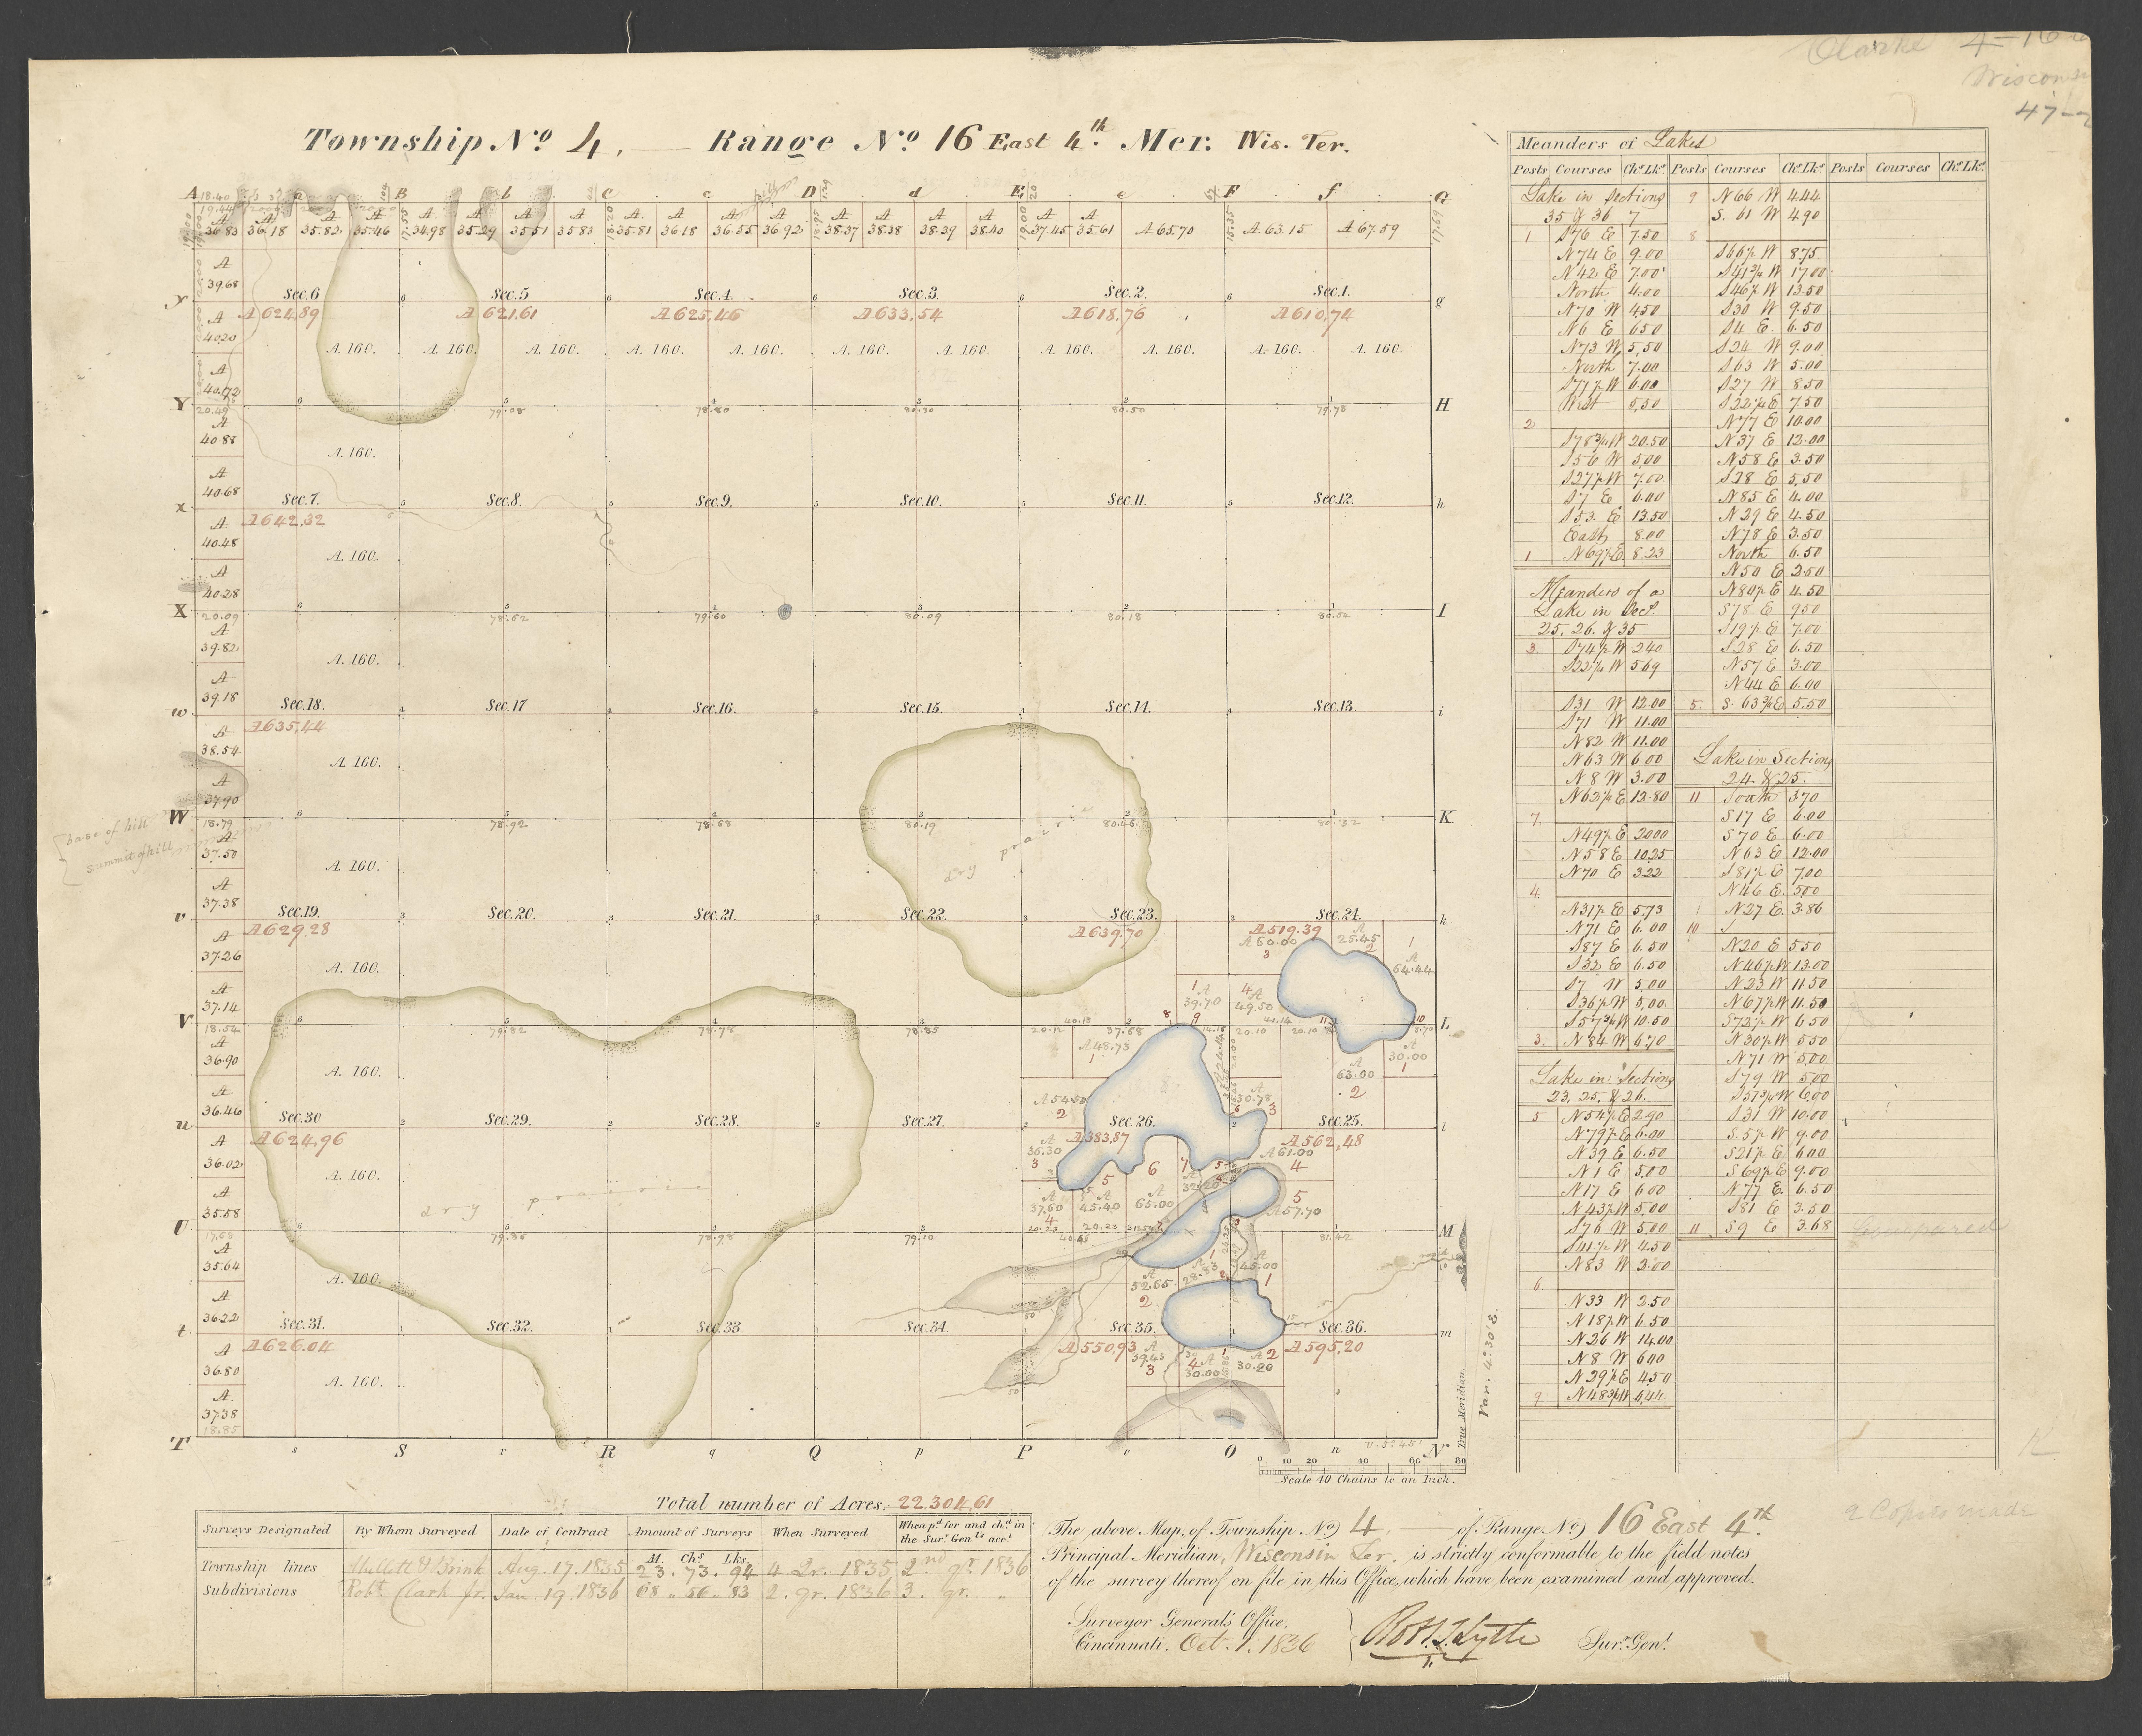 Clarke 4-16
Wisconsin
47-
Township No. 4. — Range No. 16 East 4th. Mer. Wis. Ter.
A a B b C c D d E e F f G
A 36.83 A 36.18 A 35.82 A 35.46 A 34.98 A 35.29 A 35.51 A 35.83 A 35.81 A 36.18 A 36.55 A 36.92 A 38.37 A 38.38 A 38.39 A 38.40 A 37.45 A 35.61 A 65.70 A 63.15 A 67.59
A 39.68
Sec.6 Sec.5 Sec.4. Sec.3. Sec.2. Sec.1.
y g
A 624,89 A 621,61 A 625,46 A 633,54 A 618,76 A 610,74
A 40.20
A. 160. A. 160. A. 160. A. 160. A. 160. A. 160. A. 160. A. 160. A. 160. A. 160. A. 160.
A 40.72
Y 20.49 79.08 78.80 80.30 80.50 79.78 H
A 40.88
A. 160.
A 40.68
Sec.7. Sec.8. Sec.9. Sec.10. Sec.11. Sec.12.
x h
A 642,32
A 40.48
A. 160.
A 40.28
X 20.09 78.62 79.60 80.09 80.18 80.52 I
A 39.82
A. 160.
A 39.18
Sec.18. Sec.17 Sec.16. Sec.15. Sec.14. Sec.13.
w i
A 635,44
A 38.54
A. 160.
A 37.90
W 18.79 78.92 78.68 80.19 80.46 80.32 K
base of hill
summit of hill
dry prairie
A 37.50
A. 160.
A 37.38
Sec.19. Sec.20. Sec.21. Sec.22. Sec.23. Sec.24.
v k
A 629,28 A 639,70 A 519.39
A 60.00 3 A 25.45 2 1 A 64.44
A 37.26
A. 160.
A 37.14
1 A 39.70 4 A 49.50
V 18.54 79.82 78.78 78.85 20.12 40.13 37.68 14.16 20.10 41.14 20.10 8.70 L
A 36.90
A 48.73 1
A 30.00 1
A 63.00 2
A. 160.
A 36.46
A 54.50 2
A 30.78 3
Sec.30 Sec.29. Sec.28. Sec.27. Sec.26. Sec.25.
u l
A 624,96 A 383,87 A 562,48
A 36.02
A 36.30 3
A 61.00 4
A. 160.
A 35.58
A 37.60 4 A 45.40 5 A 65.00 6 7
5 A 57.70
dry prairie
U 17.68 79.86 78.98 79.10 20.23 40.46 20.23 81.42 M
A 35.64
A. 160.
A 52.65 2 A 28.83 1 A 45.00 1
road
A 36.22
Sec.31. Sec.32. Sec.33 Sec.34. Sec.35. Sec.36.
t m
A 626.04 A 550,93 A 595,20
A 39.45 3 4 A 30.00 A 2 30.20
A 36.80
A. 160.
A 37.38
18.85
T s S r R q Q p P o O n N
V. 5° 45'
True Meridian.
Var. 4° 30' E.
0 10 20 40 60 80
Scale 40 Chains to an Inch.
Meanders of Lakes
Posts Courses Chs.Lks. Posts Courses Chs.Lks. Posts Courses Chs.Lks.
Lake in Sections
35 & 36
1 S76 E 7.50
N74 E 9.00
N42 E 7.00
North 4.00
N70 W 4.50
N6 E 6.50
N73 W 5,50
North 7.00
S77½ W 6.00
West 5,50
2
S78¾ W 20.50
S56 W 5,00
S27½ W 7.00
S7 E 6.00
S53 E 13.50
East 8.00
1 N69½ E 8.23
Meanders of a
Lake in Secs.
25, 26. & 35
3. S74½ W 2.40
S22½ W 5.69
S31 W 12.00
S71 W 11.00
N82 W 11.00
N63 W 6 00
N8 W 3.00
N62½ E 13.80
7.
N49½ E 20.00
N58 E 10.25
N70 E 3.22
4.
N31½ E 5.73
N71 E 6.00
S87 E 6.50
S32 E 6.50
S7 W 5,00
S36½ W 5,00
S57¾ W 10.50
3. N84 W 6.70
Lake in Sections
23, 25, & 26.
5 N54½ E 2.90
N79½ E 6.00
N39 E 6.50
N1 E 5,00
N17 E 6.00
N43½ W 5,00
S76 W 5,00
S41½ W 4.50
N83 W 3.00
6.
N33 W 2.50
N18½ W 6.50
N26 W 14.00
N8 W 6.00
N29½ E 4.50
9 N48¾ W 6,44
9 N66 W 4.44
S. 61 W 4.90
8
S66½ W 8.75
S41¾ W 17.00
S46½ W 13.50
S30 W 9.50
S4 E. 6.50
S24 W 9.00
S63 W 5.00
S27 W 8.50
S22¼ E 7.50
N77 E 10.00
N37 E 12.00
N58 E 3.50
S28 E 5,50
N85 E 4.00
N29 E 4.50
N78 E 3.50
North 6.50
N50 E 2.50
N80½ E 4.50
S78 E 9.50
S19½ E 7.00
S28 E 6.50
N57 E 3.00
N44 E 6.00
5. S. 63¾ E 5.50
Lake in Sections
24. & 25.
11 South 3.70
S17 E 6.00
S70 E 6.00
N63 E 12.00
S81½ E 7.00
N46 E. 5.00
N27 E. 3.86
10
N20 E 5.50
N46½ W 13.00
N23 W 11.50
N67½ W 11.50
S72½ W 6.50
N30½ W 5.50
N71 W 5,00
S79 W 5,00
S51¾ W 6.00
S31 W 10.00
S.5½ W 9.00
S21½ E 6.00
S69½ E 9.00
N77 E. 6.50
S81 E 3.50
11 S9 E 3.68
Compared
Total number of Acres. 22.304,61
Surveys Designated By Whom Surveyed Date of Contract Amount of Surveys When Surveyed When pd. for and chd. in the Surr. Genls. acct.
M. Chs. Lks.
Township lines Mullett & Brink Aug. 17. 1835 23. 73. 94 4 Qr. 1835 2nd qr. 1836
Subdivisions Robt. Clark Jr. Jan. 19. 1836 68 " 56 " 83 2. qr. 1836 3. qr. "
The above Map, of Township No. 4 of Range No. 16 East 4th.
Principal Meridian, Wisconsin Ter. is strictly conformable to the field notes
of the survey thereof on file in this Office, which have been examined and approved.
Surveyor General's Office,
Cincinnati. Oct. 1. 1836
Robt. T. Lytle Surr. Genl.
2 Copies made